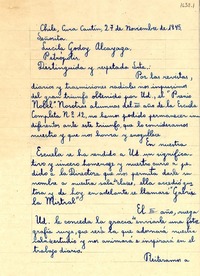 Chile, Cura-Cautín, 27 de Noviembre de 1945
Señorita
Lucila Godoy Alcayaga.
Petrópolis.
Distinguida y respetada Srta.:
Por las revistas,
diarios y trasmisiones radiales nos impusimos
del gran triunfo obtenido por Ud., el "Premio
Nobel". Nosotras alumnas del III año de la Escuela
Completa N° 12, no hemos podido permanecer in-
diferentes ante este triunfo, que lo consideramos
nuestro y que nos honra y enorgullece.
En nuestra
Escuela se ha rendido a Ud. un significa-
tivo y sincero homenaje y nuestro curso ha
pedido a la Directora que nos permita darle su
nombre a nuestra sala-clase, ella accedió gus-
tosa y de hoy en adelante se llamará "Gabrie-
la Mistral"
El III año, ruega
Ud. le conceda la gracia enviarle una foto-
grafía suya, que será la que adornará nuestra
sala-estudio y nos animará e inspirará en el
trabajo diario.
Reiteramos a